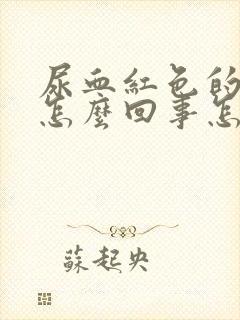 尿血紅色的
怎麼回事怎
蘇起央